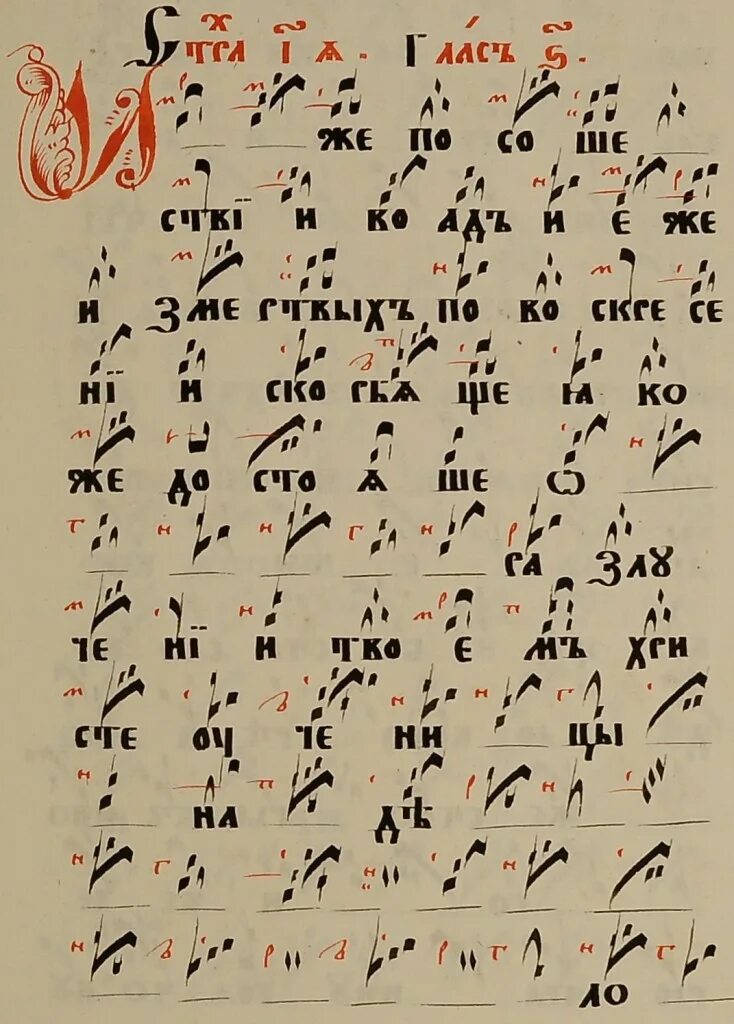 Стⷯра І҃ ѧ. Гласъ ѕ҃.
И же по со ше
ствї и ко адъ и е же
и зме ртвыхъ по во скре се
нї и ско рбѧ ще ꙗ ко
же до сто ѧ ше ѡ
ра злꙋ
че нї и тво е мъ хри
сте оу че ни цы
на дѣ
ло